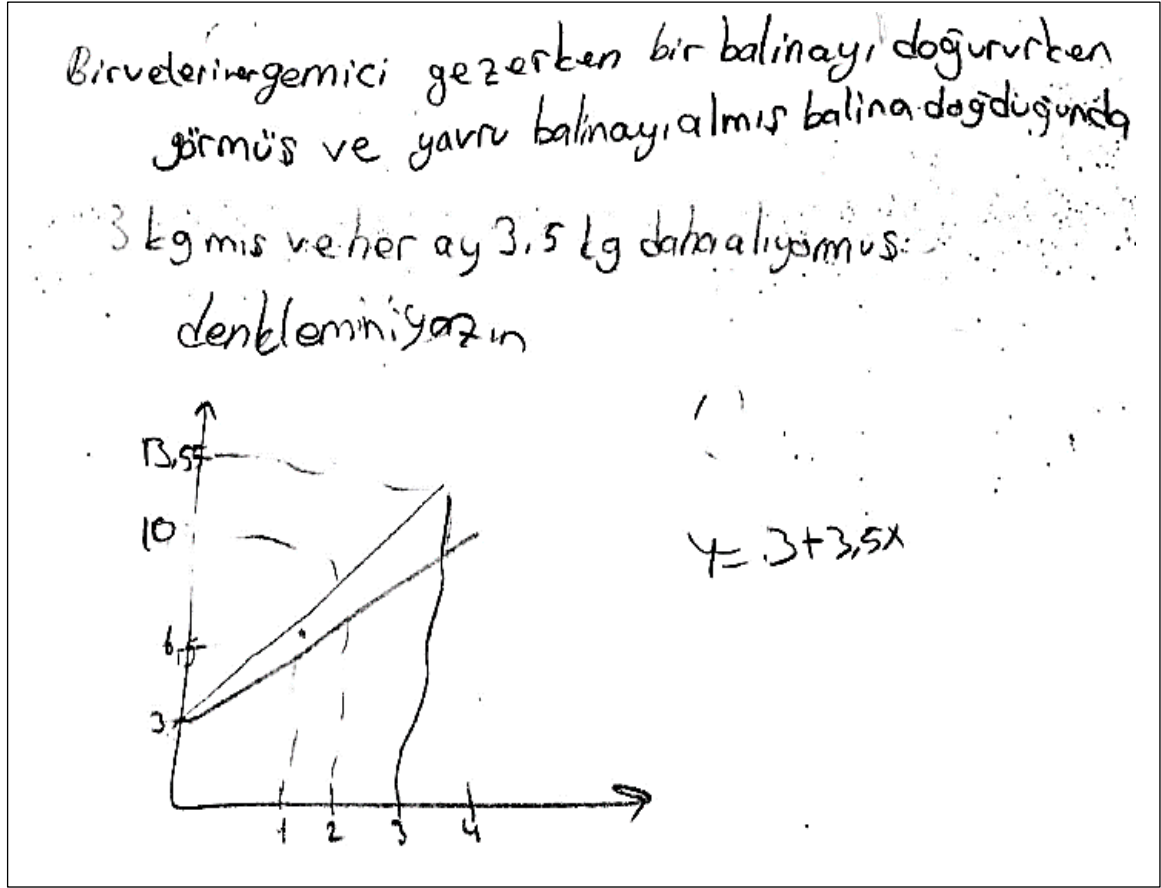 gemici gezerken bir balinayı doğururken
görmüş ve yavru balinayı almış balina doğduğunda
3 kg mış ve her ay 3,5 kg daha alıyormuş.
denklemini yazın
13,5
10
6,5
3
1 2 3 4
y = 3+3,5x